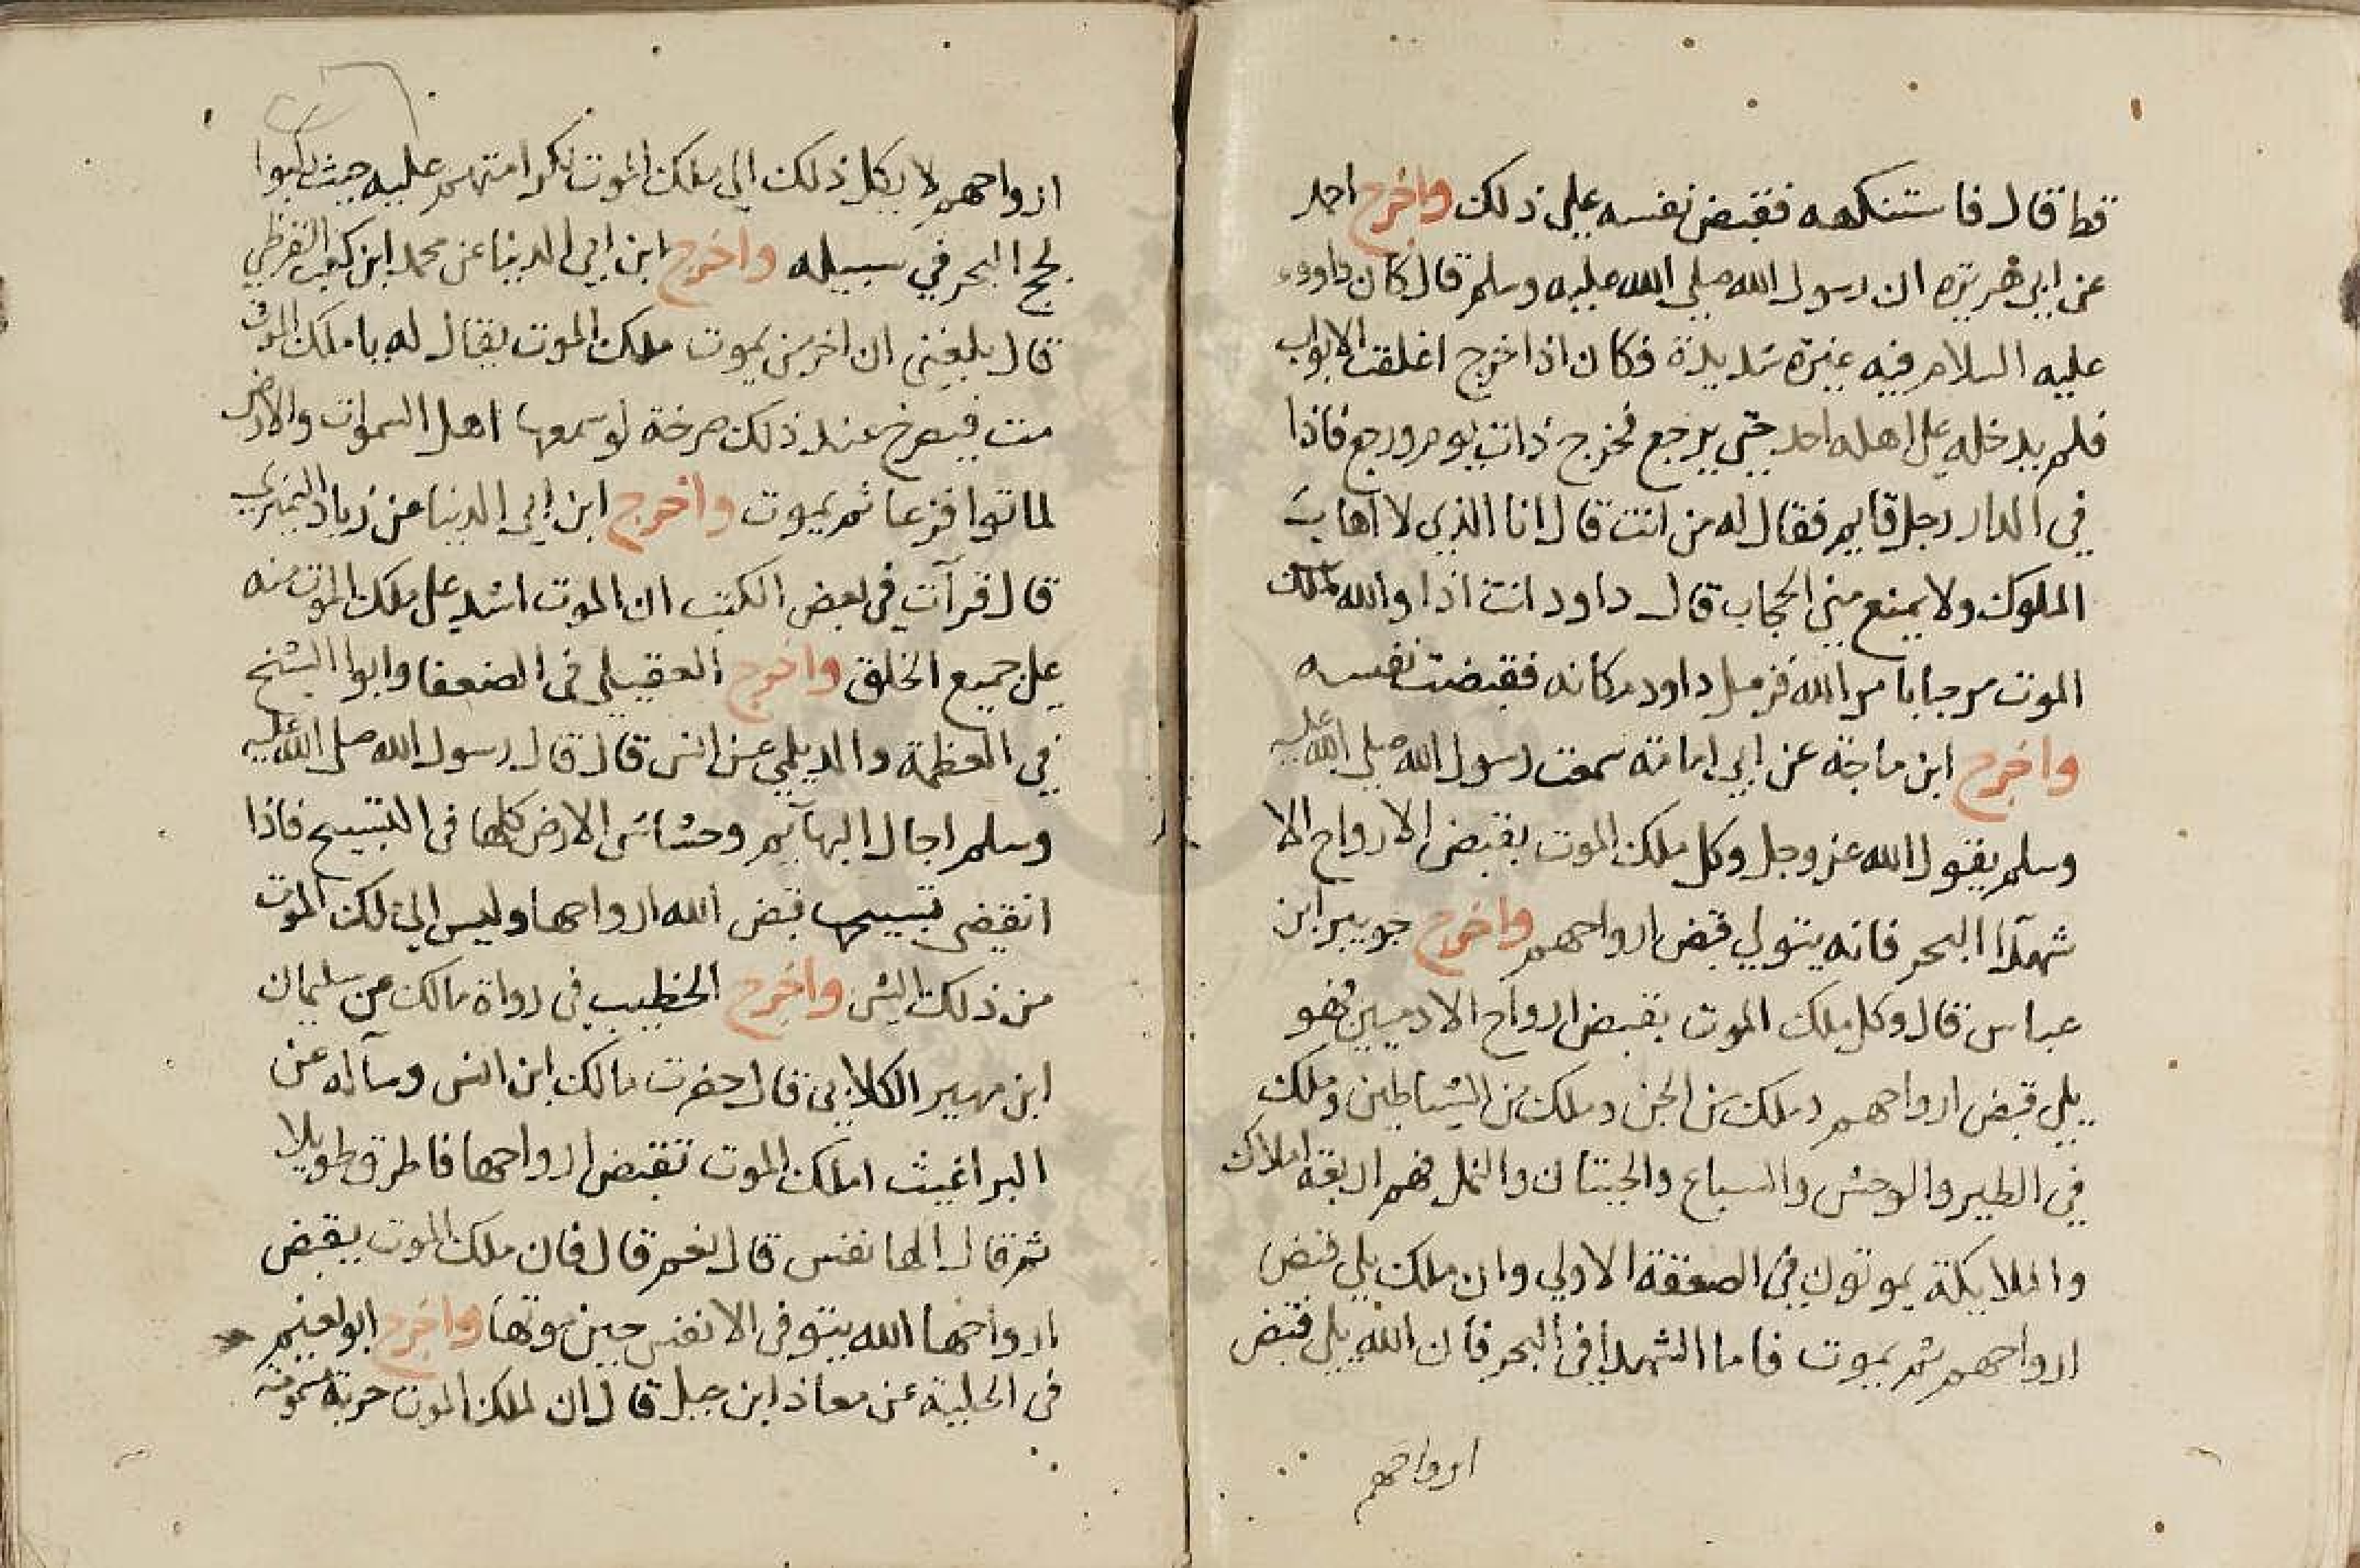 قط قال فاستنكهه فقبض نفسه على ذلك واخرج احمد
عن ابى هريره ان رسول الله صلى الله عليه وسلم قال كان داود
عليه السلام فيه غيره شديدة فكان اذا خرج اغلقت الابواب
فلم يدخله على اهله احد حتى يرجع فخرج ذات يوم ورجع فاذا
في الدار رجل قايم فقال له من انت قال انا الذي لا اهاب
الملوك ولا يمنع مني الحجاب قال داود انت اذا والله ملك
الموت مرحبا بامر الله فزمل داود مكانه فقبضت نفسه
واخرج ابن ماجة عن ابي امامة سمعت رسول الله صلى الله عليه
وسلم يقول الله عز وجل وكل ملك الموت بقبض الارواح الا
شهدآ البحر فانه يتولي قبض ارواحهم واخرج جويبر ابن
عباس قال وكل ملك الموت بقبض ارواح الادميين فهو
يلي قبض ارواحهم وملك من الجن وملك من الشياطين وملك
في الطير والوحش والسباع والحيتان والنمل فهم اربعة املاك
والملايكة يموتون في الصعقة الاولي وان ملك يلي قبض
ارواحهم ثم يموت فاما الشهدا في البحر فان الله يلي قبض
ارواحهم
ارواحهم لا يكل ذلك الى ملك الموت لكرامتهم عليه حيث ركبوا
لجج البحر في سبيله واخرج ابن ابي الدنيا عن محمد ابن كعب القرظي
قال بلغني ان اخر من يموت ملك الموت يقال له يا ملك الموت
مت فيصرخ عند ذلك صرخة لو سمعها اهل السموات والارض
لماتوا فزعا ثم يموت واخرج ابن ابي الدنيا عن زياد النميري
قال قرآت في بعض الكتب ان الموت اشد على ملك الموت منه
على جميع الخلق واخرج العقيلي في الضعفا وابوا الشيخ
في العظمة والديلمي عن انس قال قال رسول الله صلى الله عليه
وسلم اجال البهآيم وحشاش الارض كلها في التسبيح فاذا
انقضى تسبيحها قبض الله ارواحها وليس الي ملك الموت
من ذلك شي واخرج الخطيب في رواة مالك عن سليمان
ابن مهير الكلابي قال حضرت مالك ابن انس وسآله عن
البراغيث املك الموت تقبض ارواحها فاطرق طويلا
ثم قال الها نفس قال نعم قال فان ملك الموت يقبض
ارواحها الله يتوفى الانفس حين موتها واخرج ابو نعيم
في الحلية عن معاذ ابن جبل قال ان لملك الموت حربة